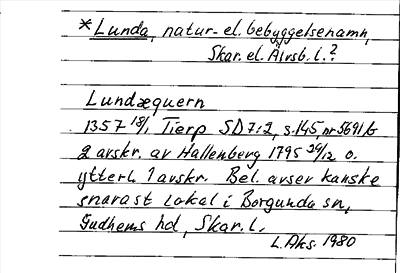 *Lunda, natur- el. bebyggelsenamn,
Skar. el. Älvsb. l.?
Lundæquern
1357 18/1 Tierp SD 7:2, s. 145, nr 5691 b
2 avskr. av Hallenberg 1795 29/12 o.
ytterl. 1 avskr. Bel. avser kanske
snarast lokal i Borgunda sn,
Gudhems hd, Skar. l.
L. Aks. 1980